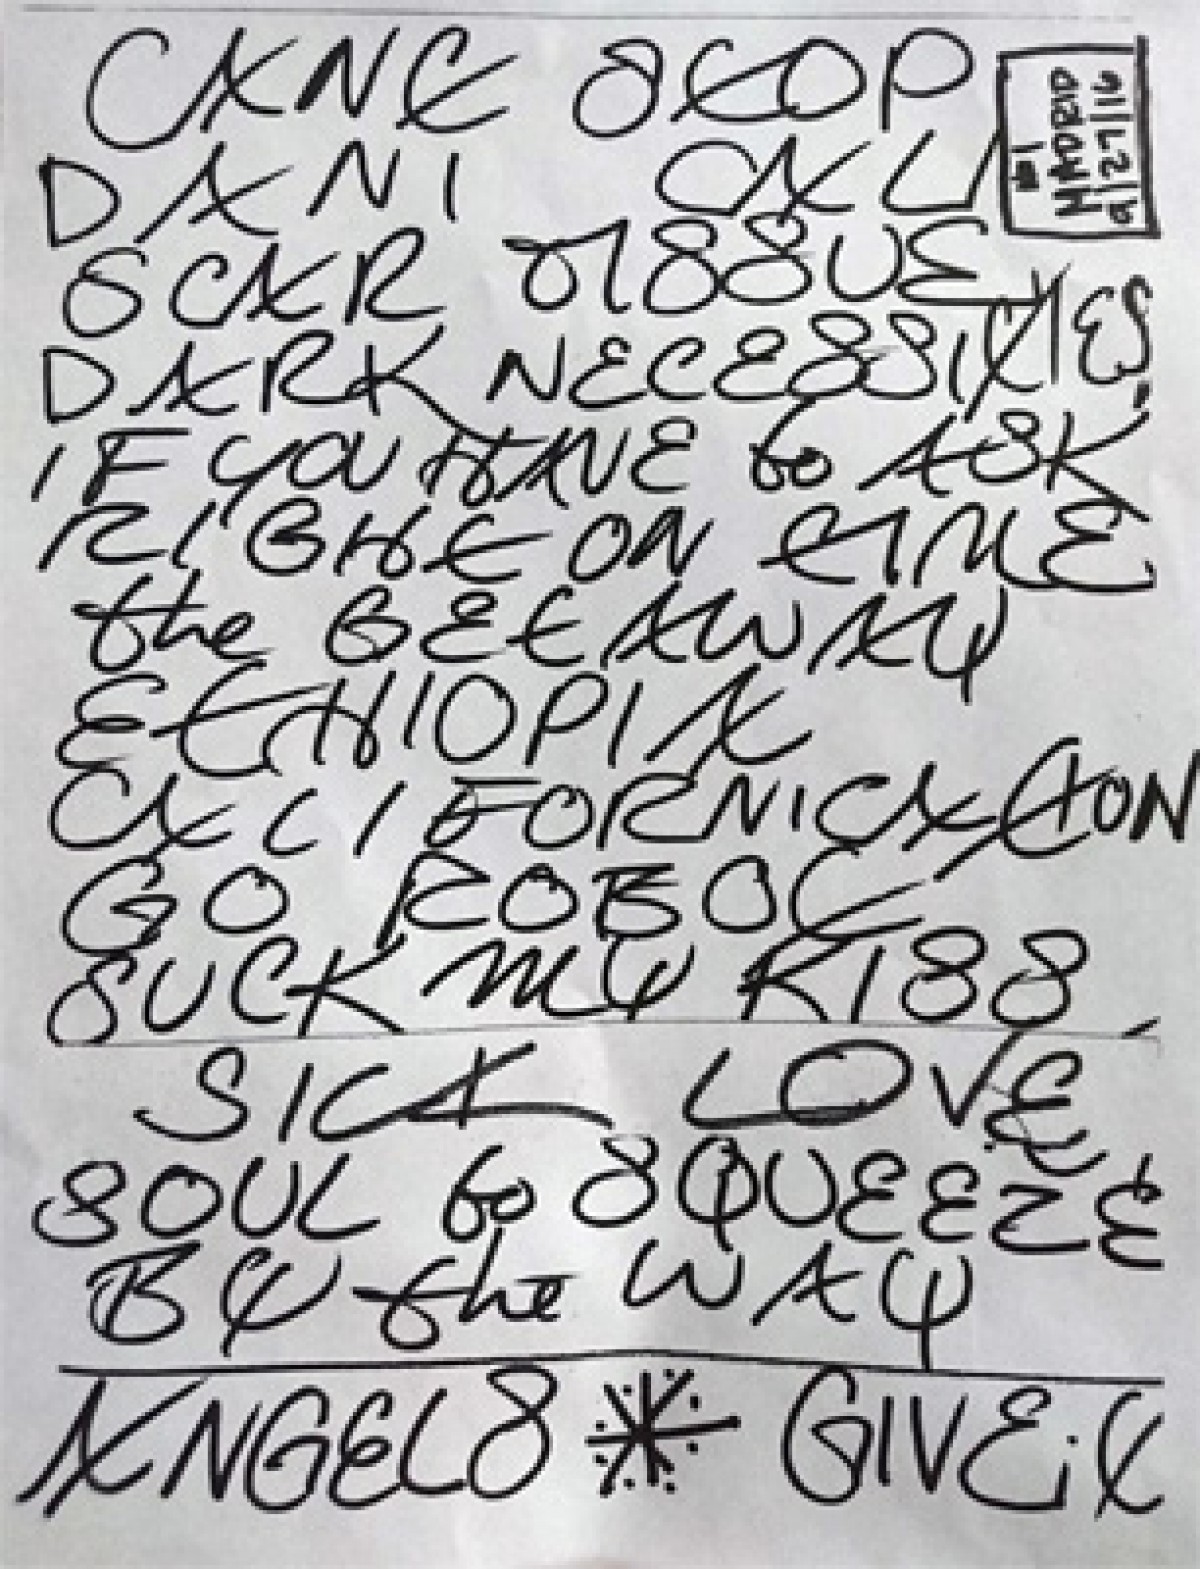 CAN'T STOP
DANI CALI
SCAR TISSUE
DARK NECESSITIES
IF YOU HAVE to ASK
RIGHT ON TIME
the GETAWAY
ETHIOPIA
CALIFORNICATION
GO ROBOT
SUCK MY KISS
SICK LOVE
SOUL to SQUEEZE
BY the WAY
ANGELS * GIVE it
MADRID
9/27/16